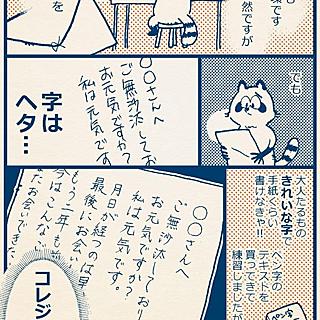 も
です
然ですが
を
でも
〇〇さんへ
ご無沙汰してお
お元気ですか?
私は元気です
字は
ヘタ…
大人たるもの
きれいな字で
手紙くらい
書けなきゃ!!
ペン字の
テキストを
買ってきて
練習しましたが
ペン字
〇〇さんへ
ご無沙汰しており
お元気ですか?
私は元気です。
月日が経つのは早
最後にお会い
もう二年も
今はこんなご
お会いできた
コレジ